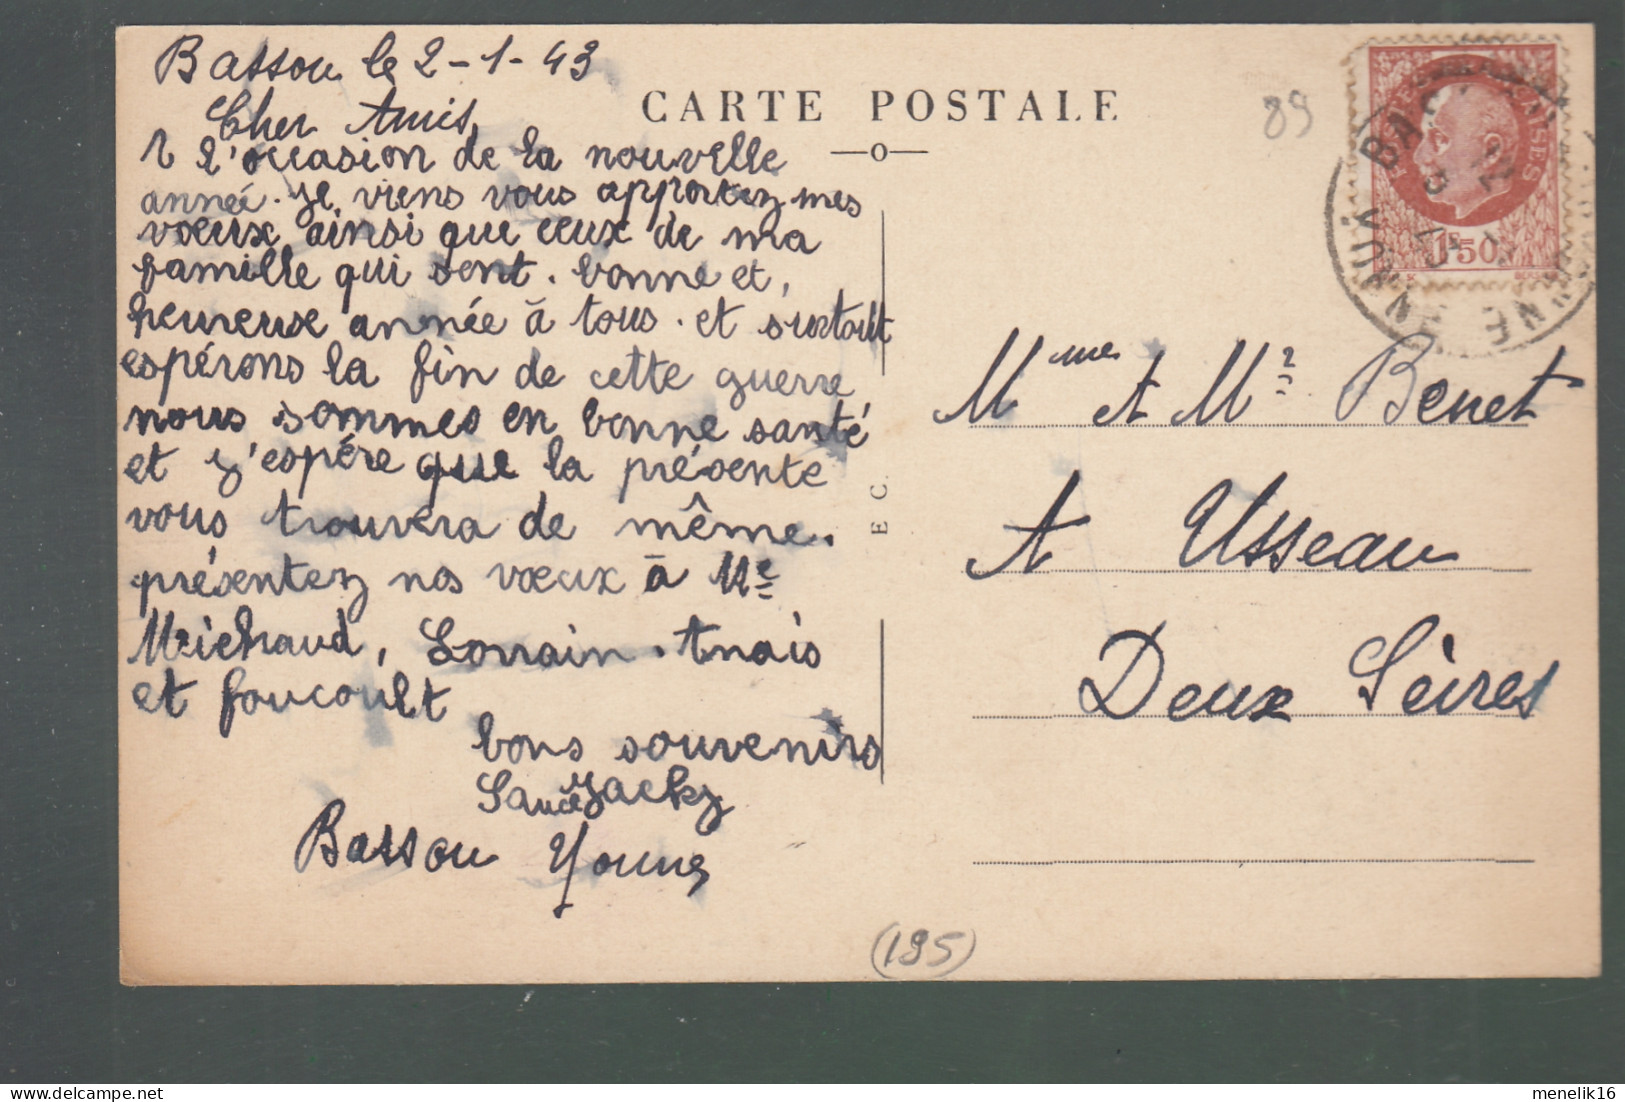 Bassou le 2-1-43
Cher Amis,
A l'occasion de la nouvelle
année. je viens vous apportez mes
vœux ainsi que ceux de ma
famille qui sont. bonne et,
heureuse année à tous. et surtout
espérons la fin de cette guerre
nous sommes en bonne santé
et j'espére que la présente
vous trouvera de même.
présentez nos vœux à Me
Michaud, Lorrain. Anais
et foucoult
bons souvenirs
Jacky
Bassou Yonne
CARTE POSTALE
—o—
89
1F50
E C
Mme et Mr Benet
A Usseau
Deux Sèvres
(195)
menelik16